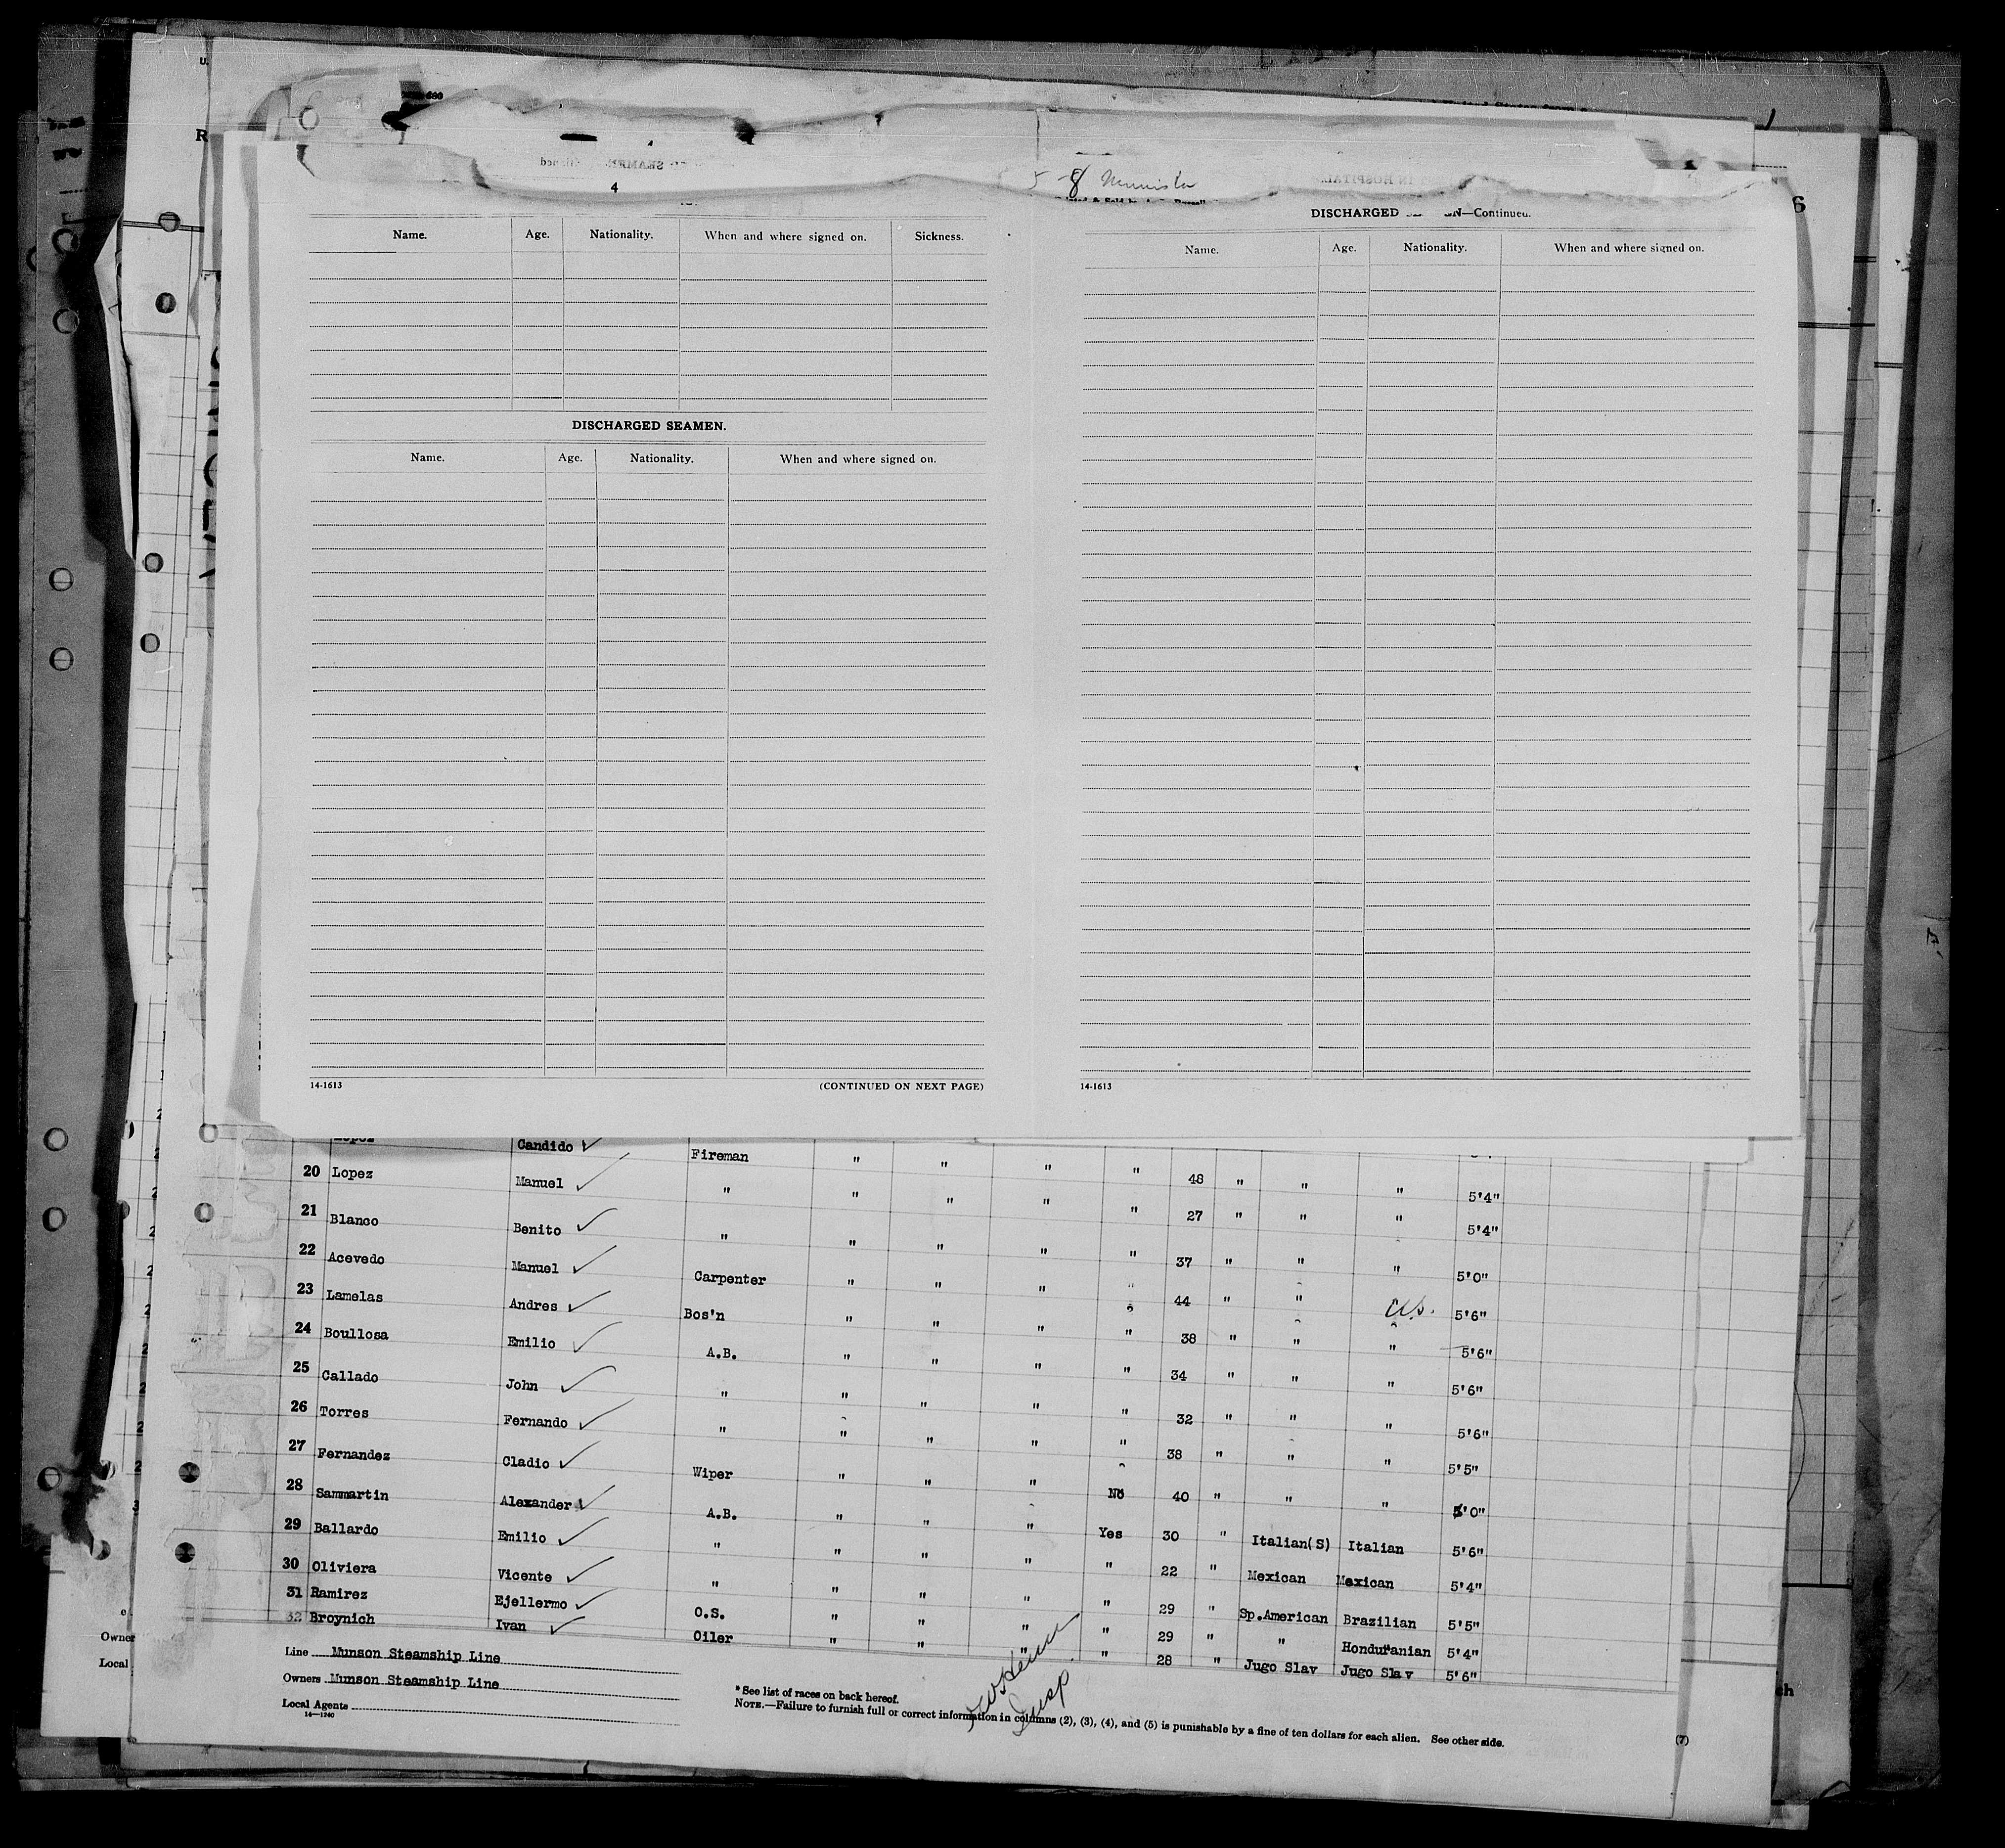 4
5-8
DISCHARGED
—Continued.
Name. Age. Nationality. When and where signed on. Sickness.
DISCHARGED SEAMEN.
Name. Age. Nationality. When and where signed on.
14-1613 (CONTINUED ON NEXT PAGE)
Name. Age. Nationality. When and where signed on.
14-1613
6
Lopez Candido ✓ Fireman " " " " 48 " " "
20 Lopez Manuel ✓ " " " " " 27 " " " 5'4"
21 Blanco Benito ✓ " " " " " 37 " " " 5'4"
22 Acevedo Manuel ✓ Carpenter " " " " 44 " " " 5'0"
23 Lamelas Andres ✓ Bos'n " " " " 38 " " " 5'6"
24 Boullosa Emilio ✓ A.B. " " " " 34 " " " 5'6"
25 Callado John ✓ " " " " " 32 " " " 5'6"
26 Torres Fernando ✓ " " " " " 38 " " " 5'6"
27 Fernandez Cladio ✓ Wiper " " " No 40 " " " 5'5"
28 Sammartin Alexander ✓ A.B. " " " Yes 30 " Italian(S) Italian 5'0"
29 Ballardo Emilio ✓ " " " " " 22 " Mexican Mexican 5'6"
30 Oliviera Vicente ✓ " " " " " 29 " Sp.American Brazilian 5'4"
31 Ramirez Ejellermo ✓ O.S. " " " " 29 " " Honduranian 5'5"
32 Broynich Ivan ✓ Oiler " " " " 28 " Jugo Slav Jugo Slav 5'4"
5'6"
Line Munson Steamship Line
Owners Munson Steamship Line
Local Agents
14—1240
* See list of races on back hereof.
NOTE.—Failure to furnish full or correct information in columns (2), (3), (4), and (5) is punishable by a fine of ten dollars for each alien. See other side.
Insp.
(7)
Owner
Local